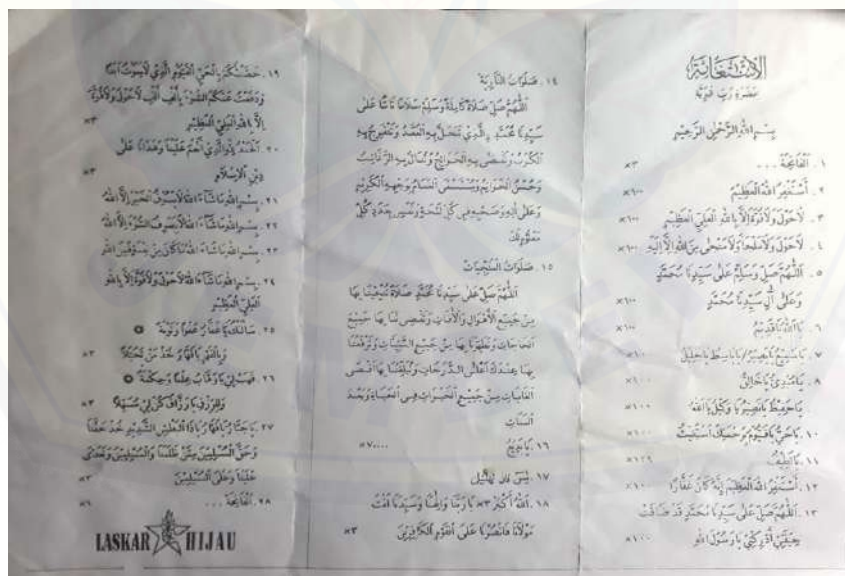 الاستغاثة
بسم الله الرحمن الرحيم
١. الفاتحة . . . ×٣
٢. أستغفر الله العظيم ×١٠٠
٣. لاحول ولاقوة إلا بالله العلي العظيم ×١٠٠
٤. لاحول ولاملجأ ولامنجى من الله إلا إليه ×١٠٠
٥. اللهم صل وسلم على سيدنا محمد
وعلى آل سيدنا محمد ×١٠٠
٦. ياألله ياقديم ×١٠٠
٧. ياسميع يابصير ×١٠٠
٨. يامبدئ ياخالق ×١٠٠
٩. ياحفيظ يانصير ياوكيل ياألله ×١٠٠
١٠. ياحي ياقيوم برحمتك أستغيث ×١٠٠
١١. يالطيف ×١٢٩
١٢. أستغفر الله العظيم إنه كان غفارا ×١٠٠
١٣. اللهم صل على سيدنا محمد قد ضاقت
حيلتي أدركني يارسول الله ×١٠٠
١٤. صلوات النارية
اللهم صل صلاة كاملة وسلم سلاما تاما على
سيدنا محمد الذي تنحل به العقد وتنفرج به
الكرب وتقضى به الحوائج وتنال به الرغائب
وحسن الخواتيم ويستسقى الغمام بوجهه الكريم
وعلى آله وصحبه في كل لمحة ونفس بعدد كل
معلوم لك
١٥. صلوات المنجيات
اللهم صل على سيدنا محمد صلاة تنجينا بها
من جميع الأهوال والآفات وتقضي لنا بها جميع
الحاجات وتطهرنا بها من جميع السيئات وترفعنا
بها عندك أعلى الدرجات وتبلغنا بها أقصى
الغايات من جميع الخيرات في الحياة وبعد
الممات
١٦. يابديع
١٨. الله أكبر ×٣ ياربنا وإلهنا وسيدنا أنت
مولانا فانصرنا على القوم الكافرين ×٣
١٩. حصنتكم بالحي القيوم الذي لايموت أبدا
ودفعت عنكم السوء بألف ألف لاحول ولاقوة
إلا بالله العلي العظيم ×٣
٢٠. الحمد لله الذي أنعم علينا وهدانا على
دين الإسلام ×٣
٢١. بسم الله ماشاء الله لايسوق الخير إلا الله
٢٢. بسم الله ماشاء الله لايصرف السوء إلا الله
٢٣. بسم الله ماشاء الله ماكان من نعمة فمن الله
٢٤. بسم الله ماشاء الله لاحول ولاقوة إلا بالله
العلي العظيم
٢٥. سألتك ياغفار عفوا وتوبة
وبالقهر ياقهار خذ من تحيلا ×٣
٢٦. فهب لي ياوهاب علما وحكمة
وللرزق يارزاق كن لي مسهلا ×٣
٢٧. ياجبار ياقهار ياذا البطش الشديد خذ حقنا
وحق المسلمين ممن ظلمنا والمسلمين وتعدى
علينا وعلى المسلمين ×٣
٢٨. الفاتحة . . . ×١
LASKAR HIJAU